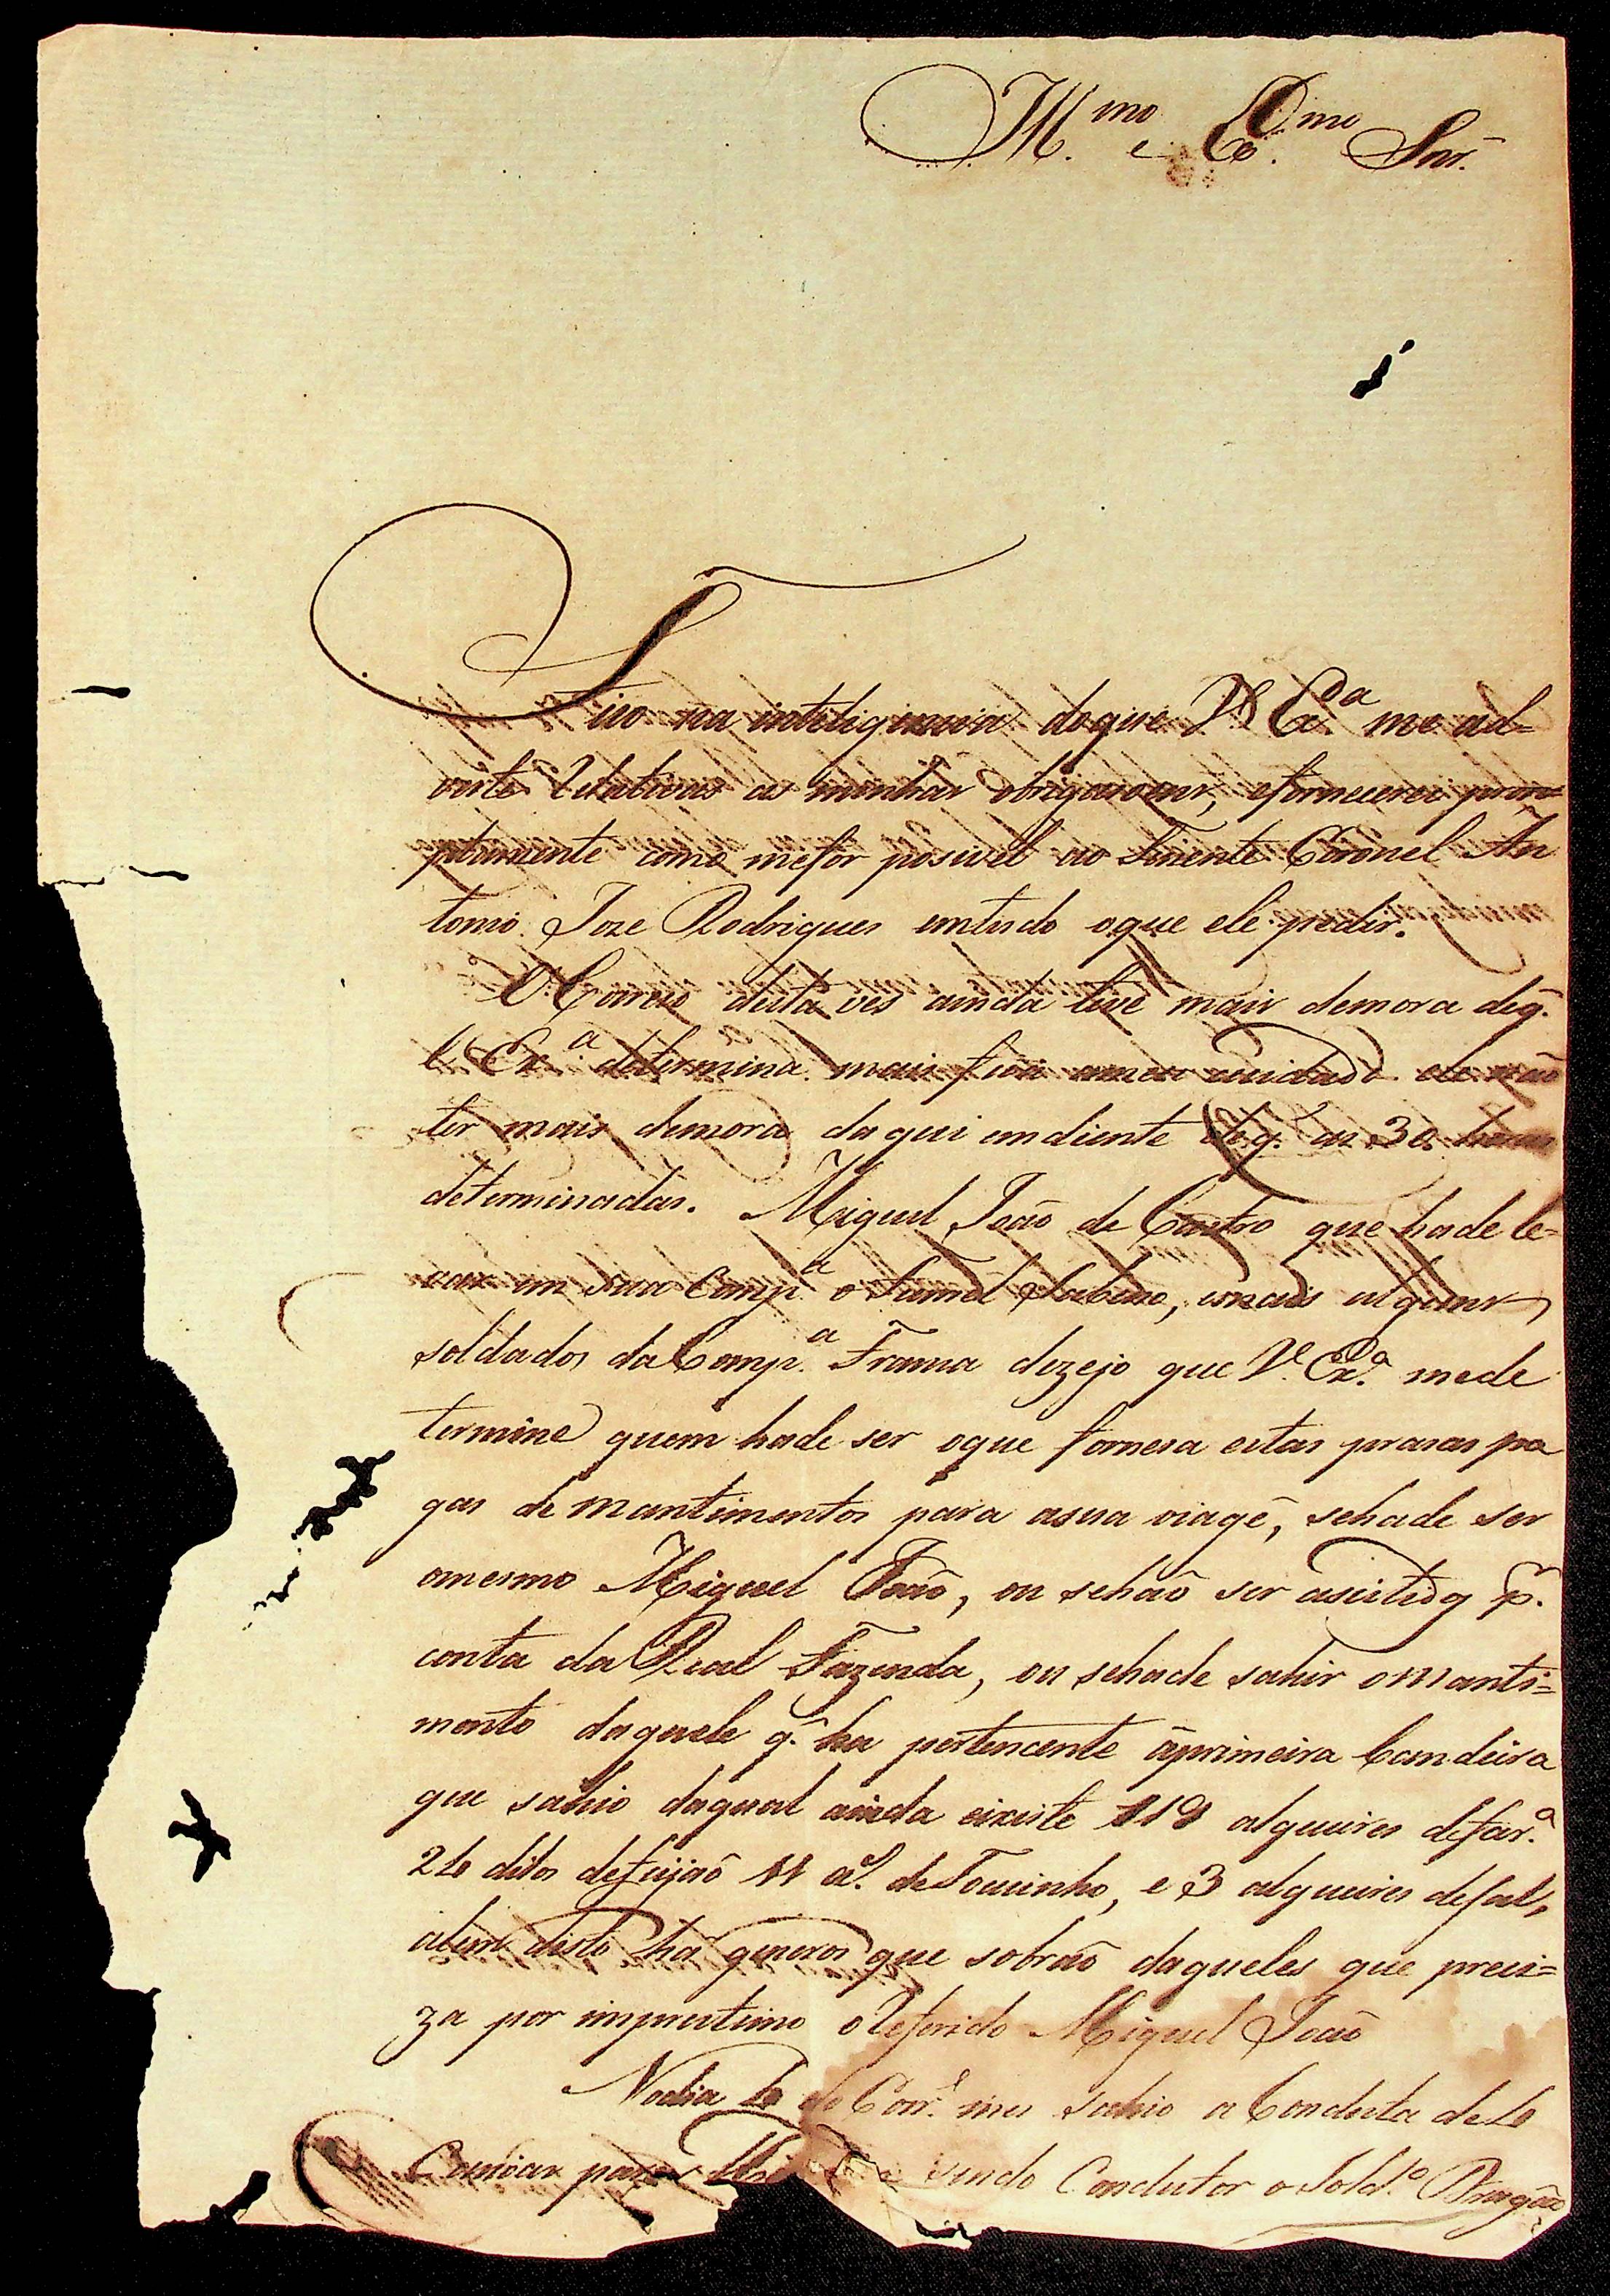 Ill.mo e Ex.mo Snr.
Fico na inteligencia deque V. Ex.a me ad=
verte Relativas as minhas obrigaçoens, efornecerei prom=
ptamente como mefor posivel ao Tinente Coronel An
tonio Joze Rodrigues emtudo oque ele pedir.
O Correio desta ves ainda teve mais demora deq.
V. Ex.a determina mais fica ameu cuidado ele não
ter mais demora daqui emdiente doq. as 30 horas
determinadas. Miguel João de Castro que hade le=
var em sua Comp.a o Furriel Sabino, emais alguns
soldados da Comp.a Franca dezejo que V. Ex.a mede
termine quem hade ser oque fornesa estas prasas pa
gas de mantimentos para asua viagē, sehade ser
omesmo Miguel João, ou sehão ser asistidos p.r
conta da Real Fazenda, ou sehade sahir omanti=
mento daquele q. ha pertencente áprimeira bandeira
que sahio daqual ainda eixiste 119 alqueires defar.a
26 ditos defeijão 11 @. de Toucinho, e 3 alqueires desal,
alem disto ha generos que sobrão daqueles que preci=
za por imprestimo oReferido Miguel João
Nodia 6 do Corr.e mes sahio a Conducta de 6
Canoas para sendo Condutor o Sold.o Aragão